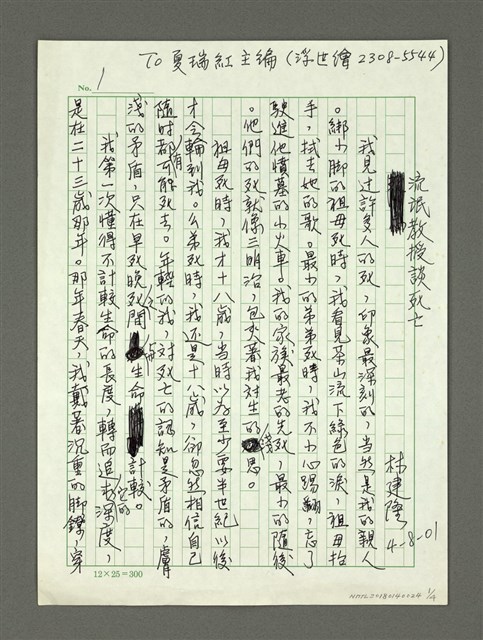 To 夏瑞紅主編(浮世繪 2308-5544)
No. 1
流氓教授談死亡
林建隆 4-8-01
我見过許多人的死,印象最深刻的,當然是我的親人
。綁小脚的祖母死時,我看見茶山流下綠色的淚,祖母抬
手,拭去她的歌。最小的弟弟死時,我不小心踢翻,忘了
駛進他憤墓的小火車。我的家族最老的先死,最小的隨後
。他們的死就像三明治,包夾著我对生的思。
祖母死時,我才十八歲,当時以為至少要半世紀以後
才会輪到我。么弟死時,我还是十八歲,卻忽然相信自己
隨時都有可能死去。年輕的我,对死亡的認知是矛盾的,膚
淺的矛盾,只在早死晚死之間与生命計較。
我第一次懂得不計較生命的長度,轉而追求它的深度,
是在二十三歲那年。那年春天,我戴著沉重的脚鐐,穿
12×25=300
NMTL20180140024 1/4